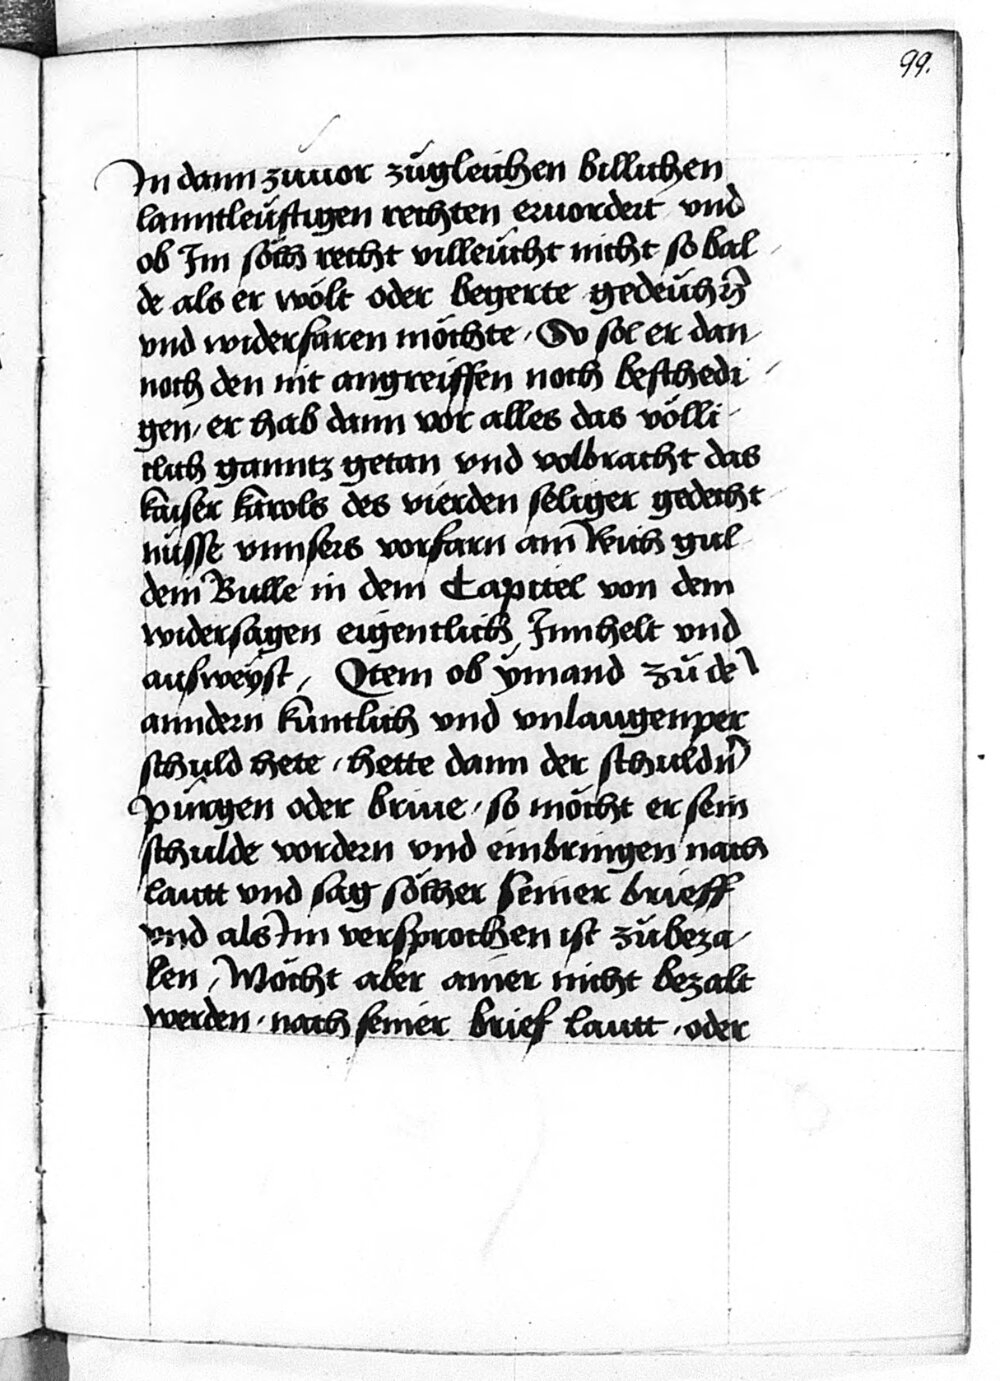 99.
In dann zuuor zůgleichen billichen
lanntleŭftigen rechten eruordert vnd
ob Im sölh recht villeŭcht nicht so bal
de als er wölt oder begerte gedeŭhñ
vnd widerfaren möchte / So sol er dan
noch den nit angreiffen noch beschedi
gen / er hab dann vor alles das völli
clich ganntz getan vnd volbracht das
kaiser karols des vierden seliger gedecht
nŭsse vnnsers vorfarn am Reich gul
dein Bulle in dem Capitel von dem
widersagen eigentlich Innhelt vnd
ausweÿst / Item ob ÿmand zů de
anndern kŭntlich vnd vnlaugenper
schuld hete / hette dann der schuldn̄
pŭrgen oder briue / so möcht er sein
schulde vordern vnd einbringen nach
lautt vnd sag sölher seiner brieff
vnd als Im versprochen ist zůbeza
len / Möcht aber ainer nicht bezalt
werden / nach seiner brief lautt / oder